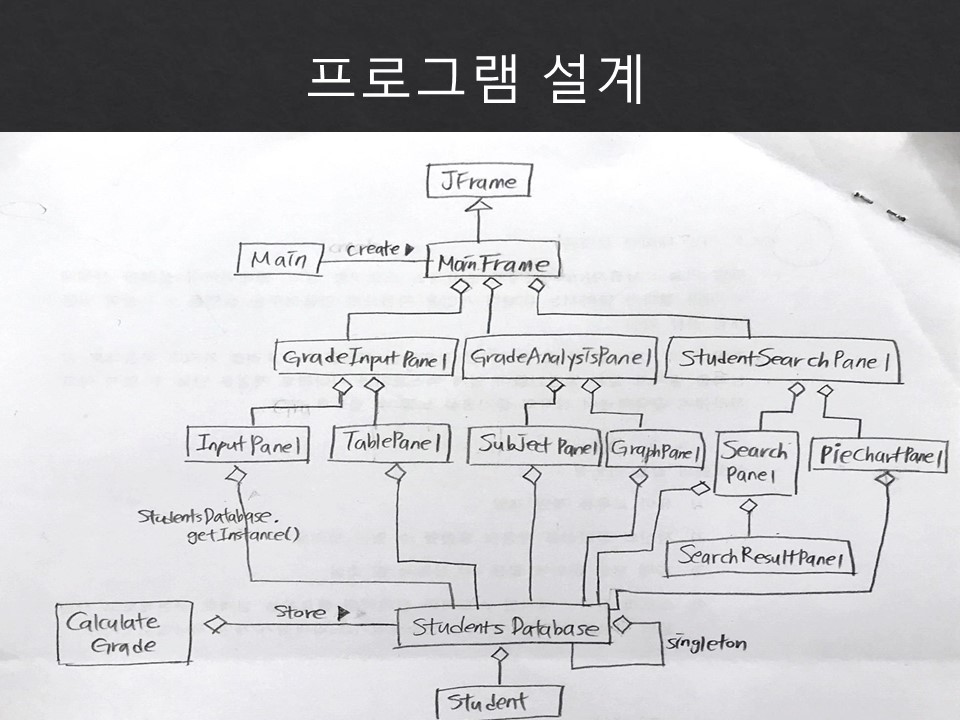 프로그램 설계
JFrame
Main
create ▶
MainFrame
GradeInputPanel
GradeAnalysisPanel
StudentSearchPanel
InputPanel
TablePanel
SubjectPanel
GraphPanel
Search
Panel
PieChartPanel
StudentsDatabase.
getInstance()
SearchResultPanel
Calculate
Grade
Store ▶
StudentsDatabase
singleton
Student